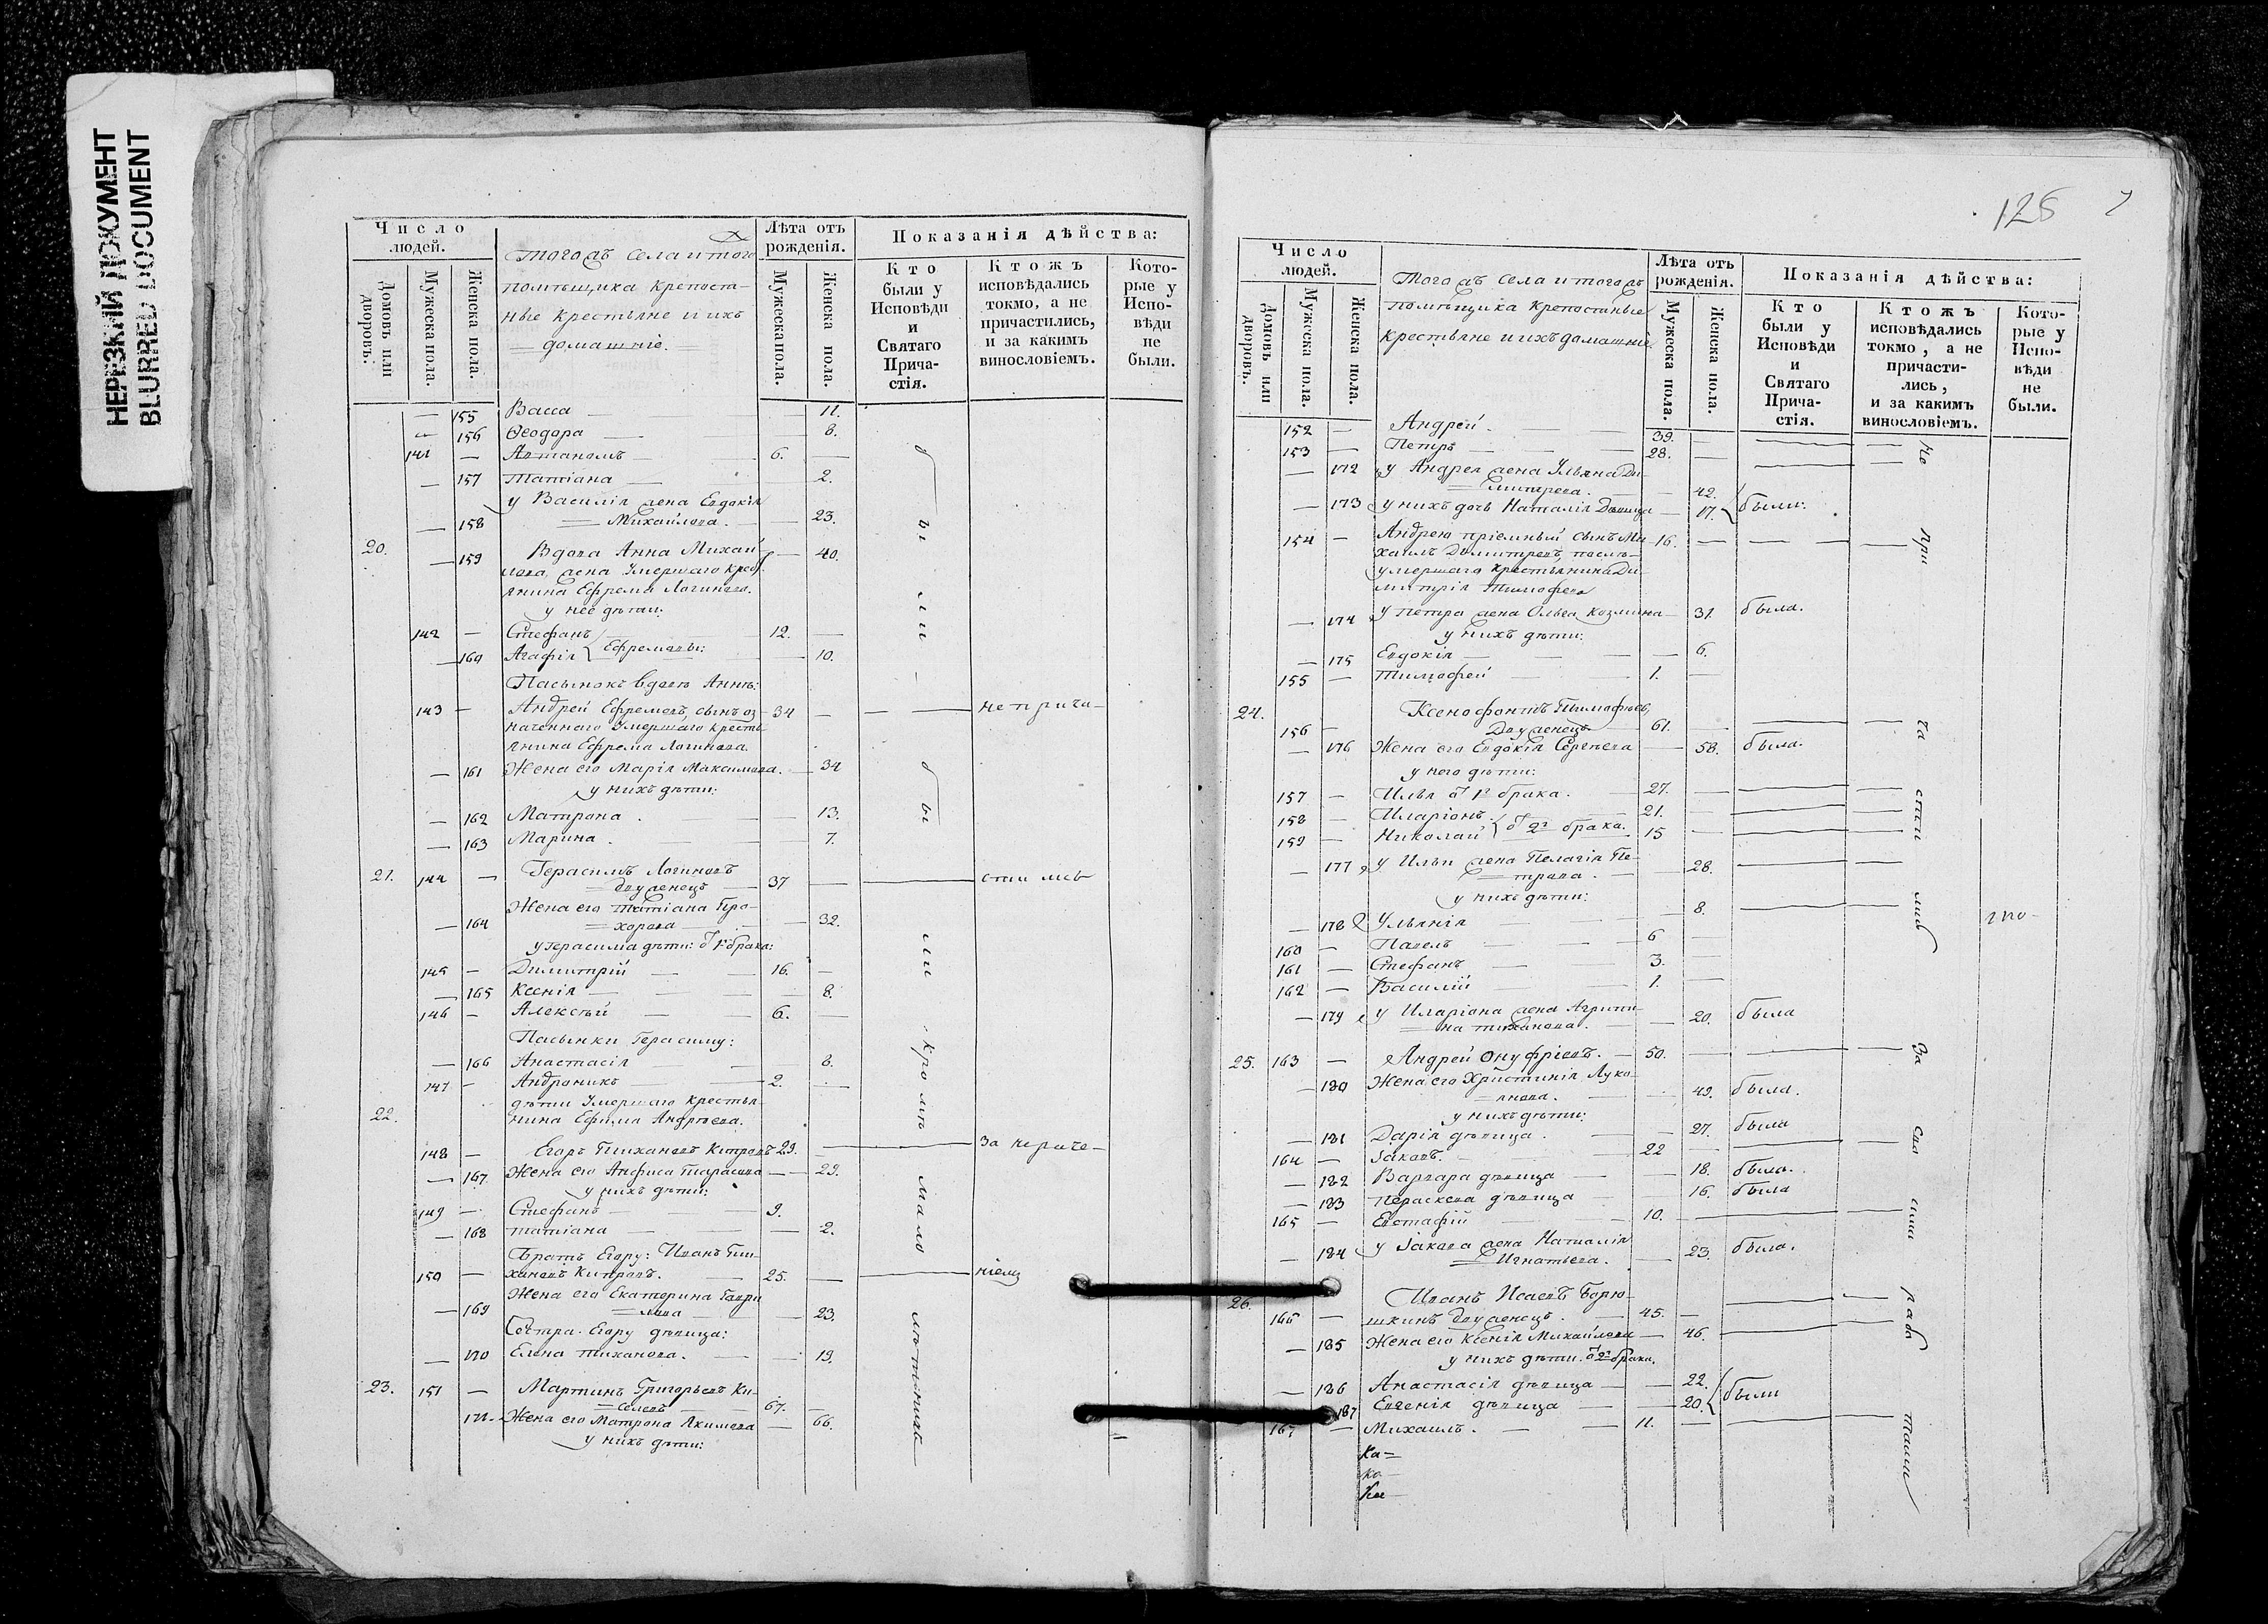 НЕРЕЗКИЙ ДОКУМЕНТ
BLURRED DOCUMENT
Число людей.
Домовъ или дворовъ:
Мужеска пола.
Женска пола.
тогожъ села и того
помѣщика крепост-
ные крестьяне и ихъ
домашніе.
Лѣта отъ рожденія.
Мужеска пола.
Женска пола.
Показанія дѣйства:
Кто были у Исповѣди и Святаго Прича-стія.
Ктожъ исповѣдались токмо, а не причастились, и за какимъ винословіемъ.
Кото-рые у Испо-вѣди не были.
— 155 Васса — 11.
— 156 Ѳеодора — 8.
141 — Автаномъ — 6. —
— 157 Татіана — 2.
у Василія жена Евдокія
— 158 Михайлова. — 23.
20. — 159 Вдова Анна Михай- — 40.
лова, жена умершаго крест-
янина Ефрема Логинова.
у нее дѣти:
142 — Стефанъ 12. —
— 160 Агафія Ефремовы: — 10.
Пасынокъ вдовѣ Аннѣ:
143 — Андрей Ефремовъ, сынъ оз- 34 — не прича-
наченнаго умершаго кресть-
янина Ефрема Логинова.
— 161 Жена его Марія Максимова. — 34
у нихъ дѣти:
— 162 Матрона. — 13.
— 163 Марина. — 7.
21. 144 — Герасимъ Логиновъ
двуженецъ — 37 — стились
Жена его Татіана Про-
— 164 хорова — 32.
у Герасима дѣти: от 1го брака:
145 — Димитрій — 16. —
— 165 Ксенія — 8.
146 — Алексѣй — 6. —
Пасынки Герасиму:
— 166 Анастасія — 8.
147 — Андроникъ — 2. —
22. дѣти умершаго крестья-
нина Ефима Андрѣева.
148 — Егоръ Тихановъ Кипровъ 29. — за нераче-
— 167 Жена его Анфиса Тарасова — 29.
у нихъ дѣти:
149 — Стефанъ — 9.
— 168 Татіана — 2.
Братъ Егору: Иванъ Ти-
150 — хановъ Кипровъ. — 25. — ніемъ
Жена его Екатерина Гаври-
— 169 лова — 23.
Сестра Егору дѣвица:
— 170 Елена Тиханова. — 19.
23. 151 — Мартинъ Григорьевъ Ки-
селевъ 67. —
171 Жена его Матрона Акимова — 66.
у нихъ дѣти:
бы-ли
бы ли кромѣ малолѣтнихъ
126
7
Число людей.
Домовъ или дворовъ.
Мужеска пола.
Женска пола.
Тогожъ села и тогожъ
помѣщика крепостные
крестьяне и ихъ домашніе
Лѣта отъ рожденія.
Мужеска пола.
Женска пола.
Показанія дѣйства:
Кто были у Исповѣди и Святаго Прича-стія.
Ктожъ исповѣдались токмо, а не причасти-лись, и за какимъ винословіемъ.
Кото-рые у Испо-вѣди не были.
152 — Андрей. — 39. —
153 — Петръ — 28. —
— 172 у Андрея жена Ульяна Ди-
митрева. — 42.
— 173 у нихъ дочь Наталія девица — 17. были.
154 — Андрею пріемный сынъ Ми- 16. —
хаилъ Димитревъ, послѣ
умершаго крестьянина Ди-
митрія Тимофева
— 174 у Петра жена Ольга Козмина — 31. была.
у нихъ дѣти:
— 175 Евдокія — 6.
155 — Тимофей — 1. —
24. Ксенофонтъ Тимофѣевъ,
156 — двуженецъ — 61. —
— 176 Жена его Евдокія Сергѣева — 58. была.
у него дѣти:
157 — Илья от 1го брака. — 27. —
158 — Иларіонъ 21. —
159 — Николай от 2го брака. 15 —
— 177 у Ильи жена Пелагія Пе- — 28.
трова.
у нихъ дѣти:
— 178 Ульянія — 8.
160 — Павелъ — 6 —
161 — Стефанъ — 3. —
162 — Василій — 1. —
— 179 у Иларіона жена Агрипи- — 20. была
на Тиханова.
25. 163 — Андрей Онуфріевъ. — 50. —
— 180 Жена его Христинія Луко-
янова. — 49. была.
у нихъ дѣти:
— 181 Дарія дѣвица. — 27. была
164 — Іаковъ. — 22 —
— 182 Варвара дѣвица — 18. была.
— 183 Пераскева дѣвица — 16. была
165 — Евстафій — 10. —
— 184 у Іакова жена Наталія
Игнатьева. — 23. была.
26. Иванъ Исаевъ Борю-
166 — шкинъ двуженецъ. — 45. —
— 185 Жена его Ксенія Михайлова — 46.
у нихъ дѣти. от 2го брака.
— 186 Анастасія дѣвица — 22.
187 Евгенія дѣвица — 20. были
167 — Михаилъ. — 11. —
Ка=
ка—
Ка—
Не при ча стились за сил ами работами